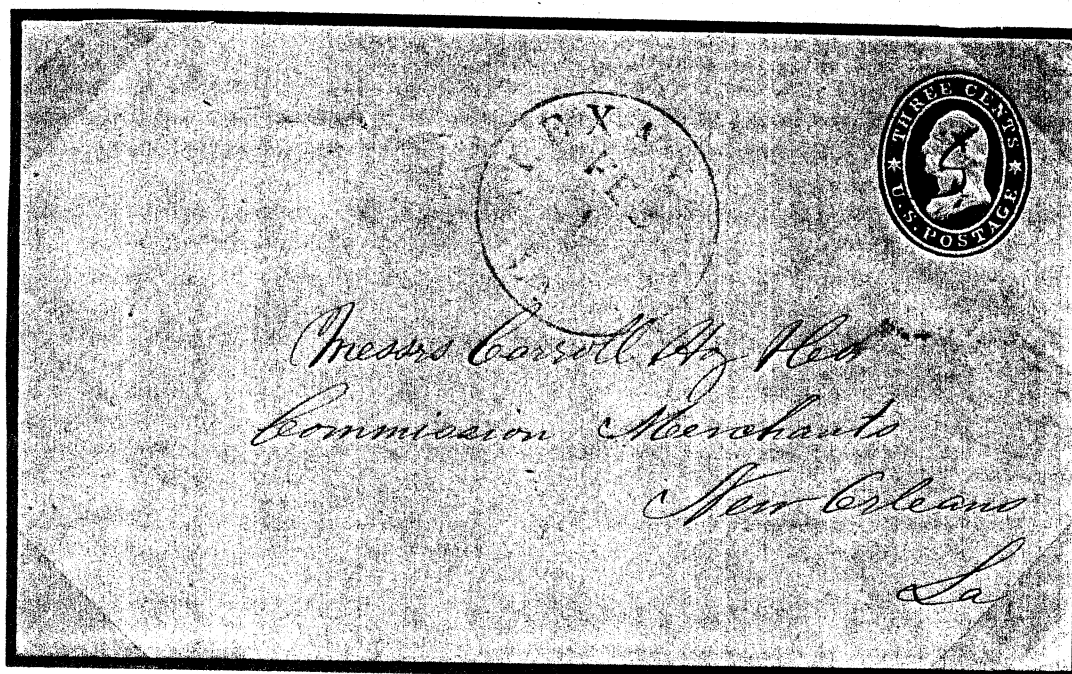 THREE CENTS
U.S. POSTAGE
TEXAS
FEB
Messrs Carroll Hoy &
Commission Merchants
New Orleans
La